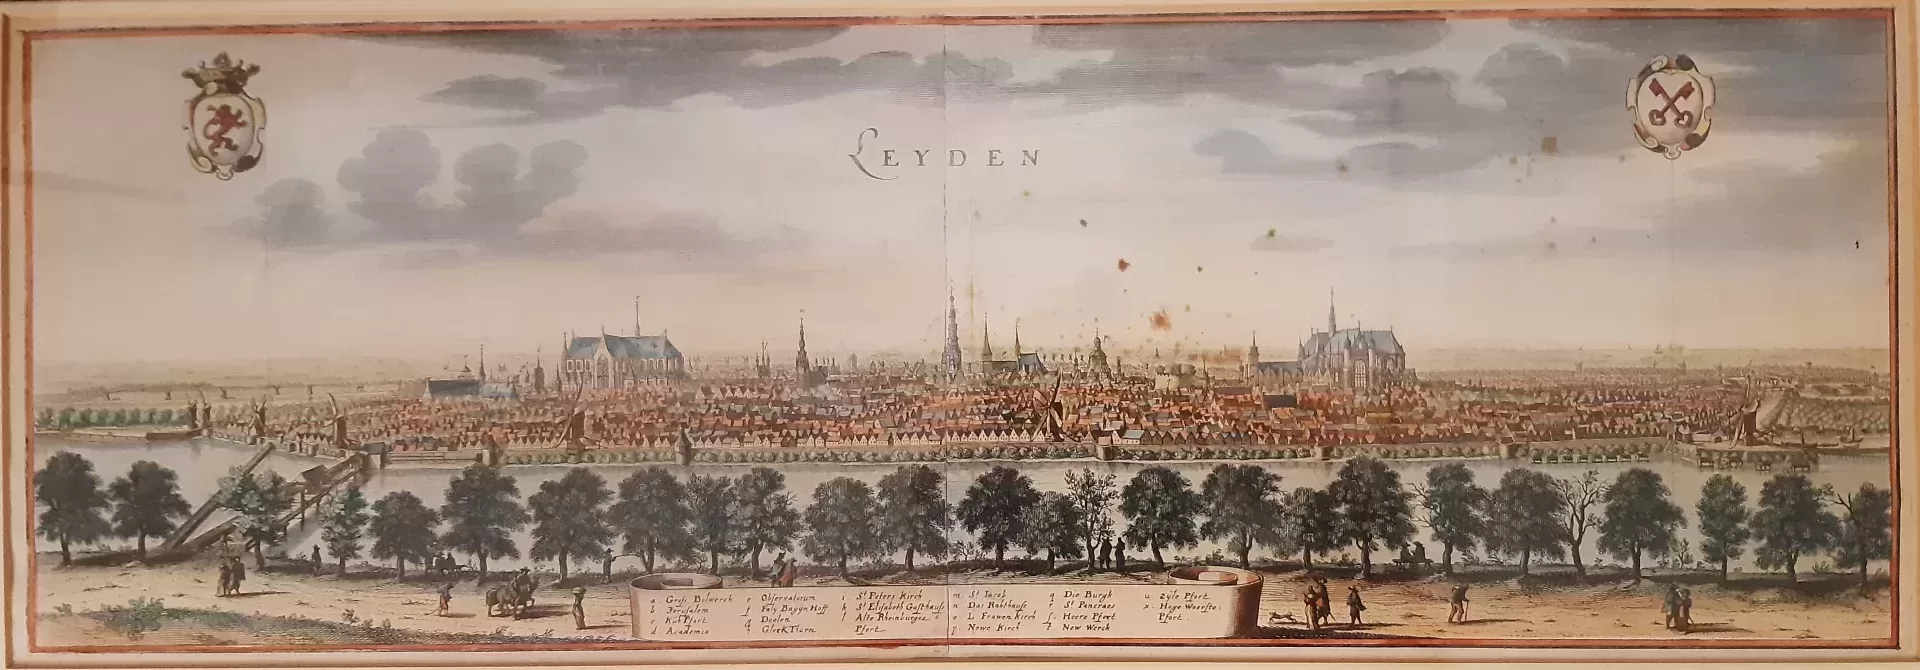 LEYDEN
a Grose Bolwerck
b Jerusalem
c KühPfort
d Academia
e Observatorum
f Faly Bagyn Hoff
g Doolen
h GlockThurn
i St Peters Kirch
k St Elisabeth Gasthauß
l Alte Rheinburger
Pfort
m St Jacob
n Das Rahthauß
o L Frawen Kirch
p Newe Kirch
q Die Burgh
r St Pancraes
s Heere Pfort
t New Werck
u Zyle Pfort
x Hoge Woertse
Pfort